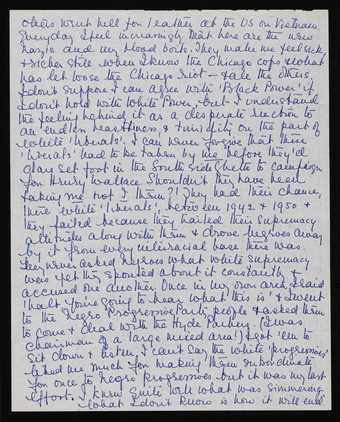 others went hell for leather at the US on Vietnam.
Everyday I feel increasingly that here are the new
Nazis and my blood boils. They make me feel sick
& sicker still when I know the Chicago cops & what
has let loose the Chicago riot — & all the others.
I don't suppose I can agree with 'Black Power' if
I don't hold with White Power, but I understand
the feeling behind it as a desperate reaction to
an endless heartlessness & on the part of
white 'liberals'. I can never forgive that these
'liberals' had to be taken by me before they'd
dare set foot in the South Side Ghetto to campaign
for Henry Wallace. Shouldn't they have been
taking me not I them?! They had their chance,
these white 'liberals', between 1942 & 1950 &
they failed because they hailed their supremacy
attitudes along with them & drove Negroes away
by it from every interracial base there was.
They never asked Negroes what White Supremacy
was & yet they spouted about it constantly &
accused one another. Once in my own area I said
'that you're going to hear what this is' & I went
to the Negro Progressive Party people & asked them
to come & deal with the Hyde Parkers. (I was
chairman of a large mixed area!) I got 'em to
sit down & listen. I can't say the white 'progressives'
liked me much for making them subordinate
for once to Negro progressives but it was my last
effort. I knew quite well what was simmering.
What I don't know is how it will end